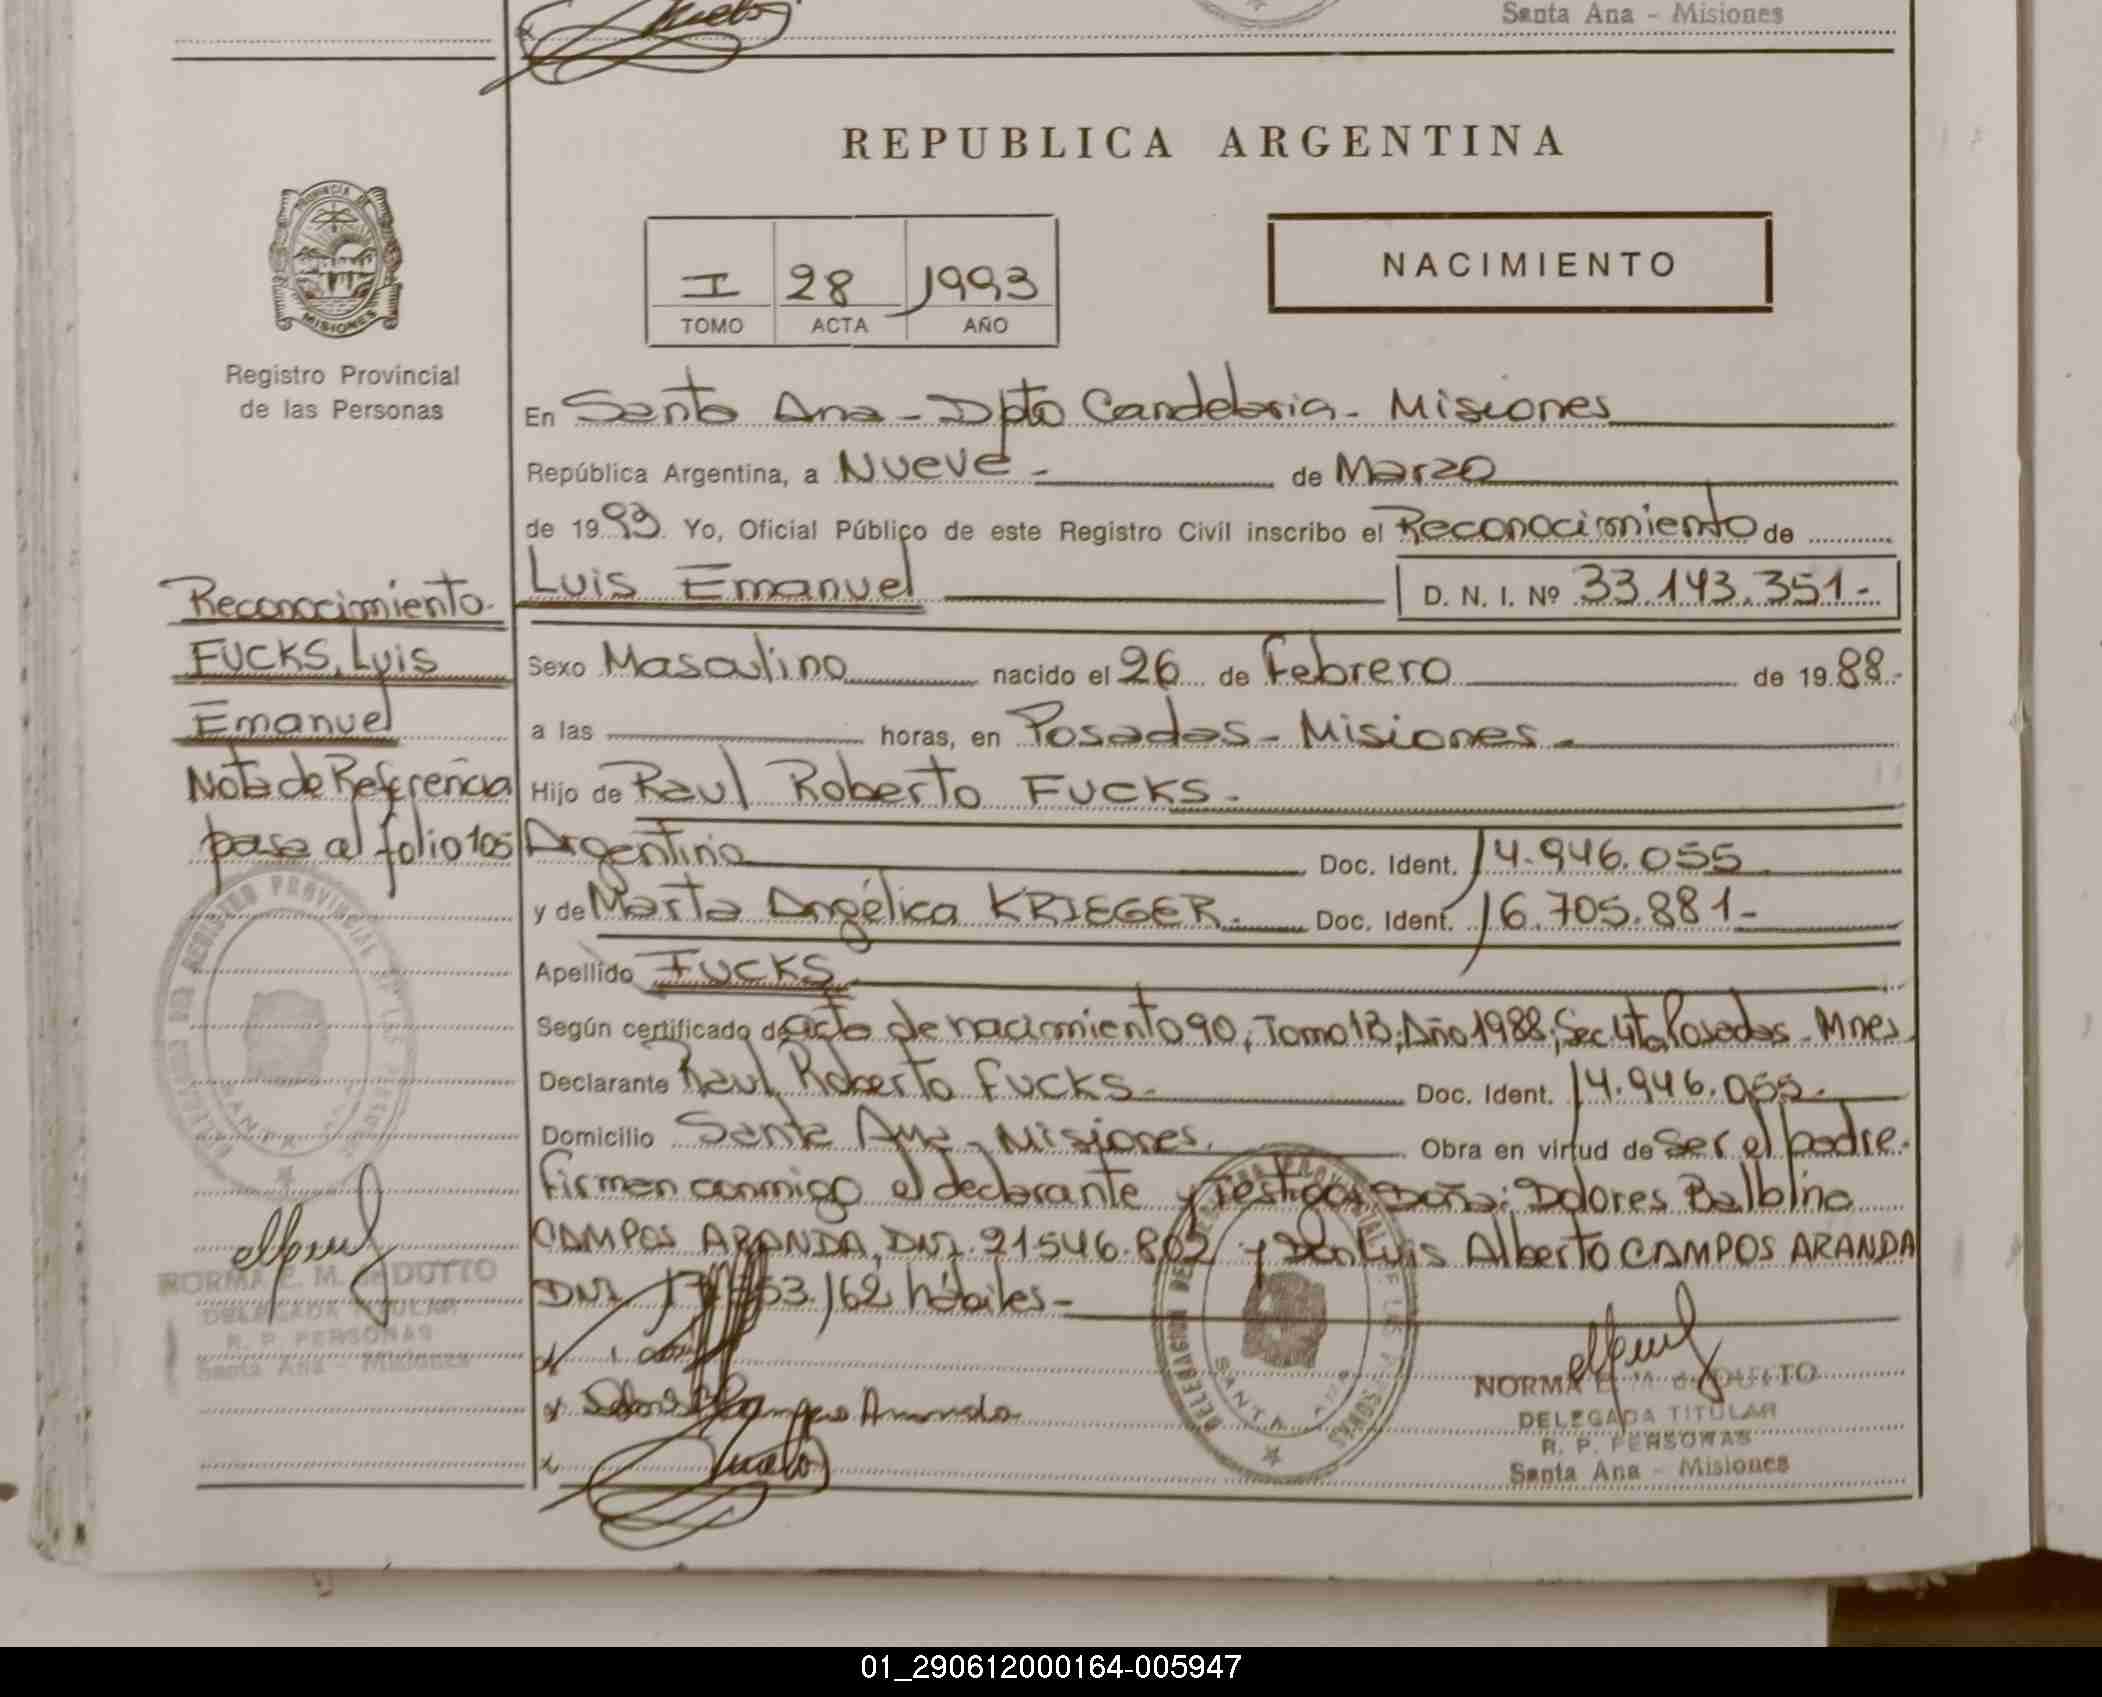 Santa Ana - Misiones
REPUBLICA ARGENTINA
PROVINCIA DE
MISIONES
Registro Provincial
de las Personas
I 28 1993
TOMO ACTA AÑO
NACIMIENTO
En Santa Ana - Dpto Candelaria - Misiones
República Argentina, a Nueve - de Marzo
de 1993. Yo, Oficial Público de este Registro Civil inscribo el Reconocimiento de
Luis Emanuel D. N. I. Nº 33.143.351.-
Reconocimiento.
FUCKS, Luis
Emanuel
Nota de Referencia
pasa al folio 105
Sexo Masculino nacido el 26 de Febrero de 1988.-
a las horas, en Posadas - Misiones -
Hijo de Raul Roberto FUCKS.
Argentino Doc. Ident. 14.946.055
y de Marta Angélica KRIEGER. Doc. Ident. 16.705.881-
Apellido FUCKS
Según certificado de acta de nacimiento 90, Tomo 1B; Año 1988; Sec. 4ta Posadas - Mnes.
Declarante Raul Roberto FUCKS. Doc. Ident. 14.946.055.
Domicilio Santa Ana - Misiones. Obra en virtud de Ser el padre.
Firman conmigo el declarante y Testigos Doña: Dolores Balbina
CAMPOS ARANDA, DNI. 21546.802 y Don Luis Alberto CAMPOS ARANDA
DNI 163.162 hábiles -
DELEGACION DEL REGISTRO PROVINCIAL DE LAS PERSONAS
SANTA ANA
NORMA E. M. de
DELEGADA TITULAR
R. P. PERSONAS
Santa Ana - Misiones
DELEGACION DEL REGISTRO PROVINCIAL DE LAS PERSONAS
SANTA ANA
NORMA E. M. de
DELEGADA TITULAR
R. P. PERSONAS
Santa Ana - Misiones
01_290612000164-005947